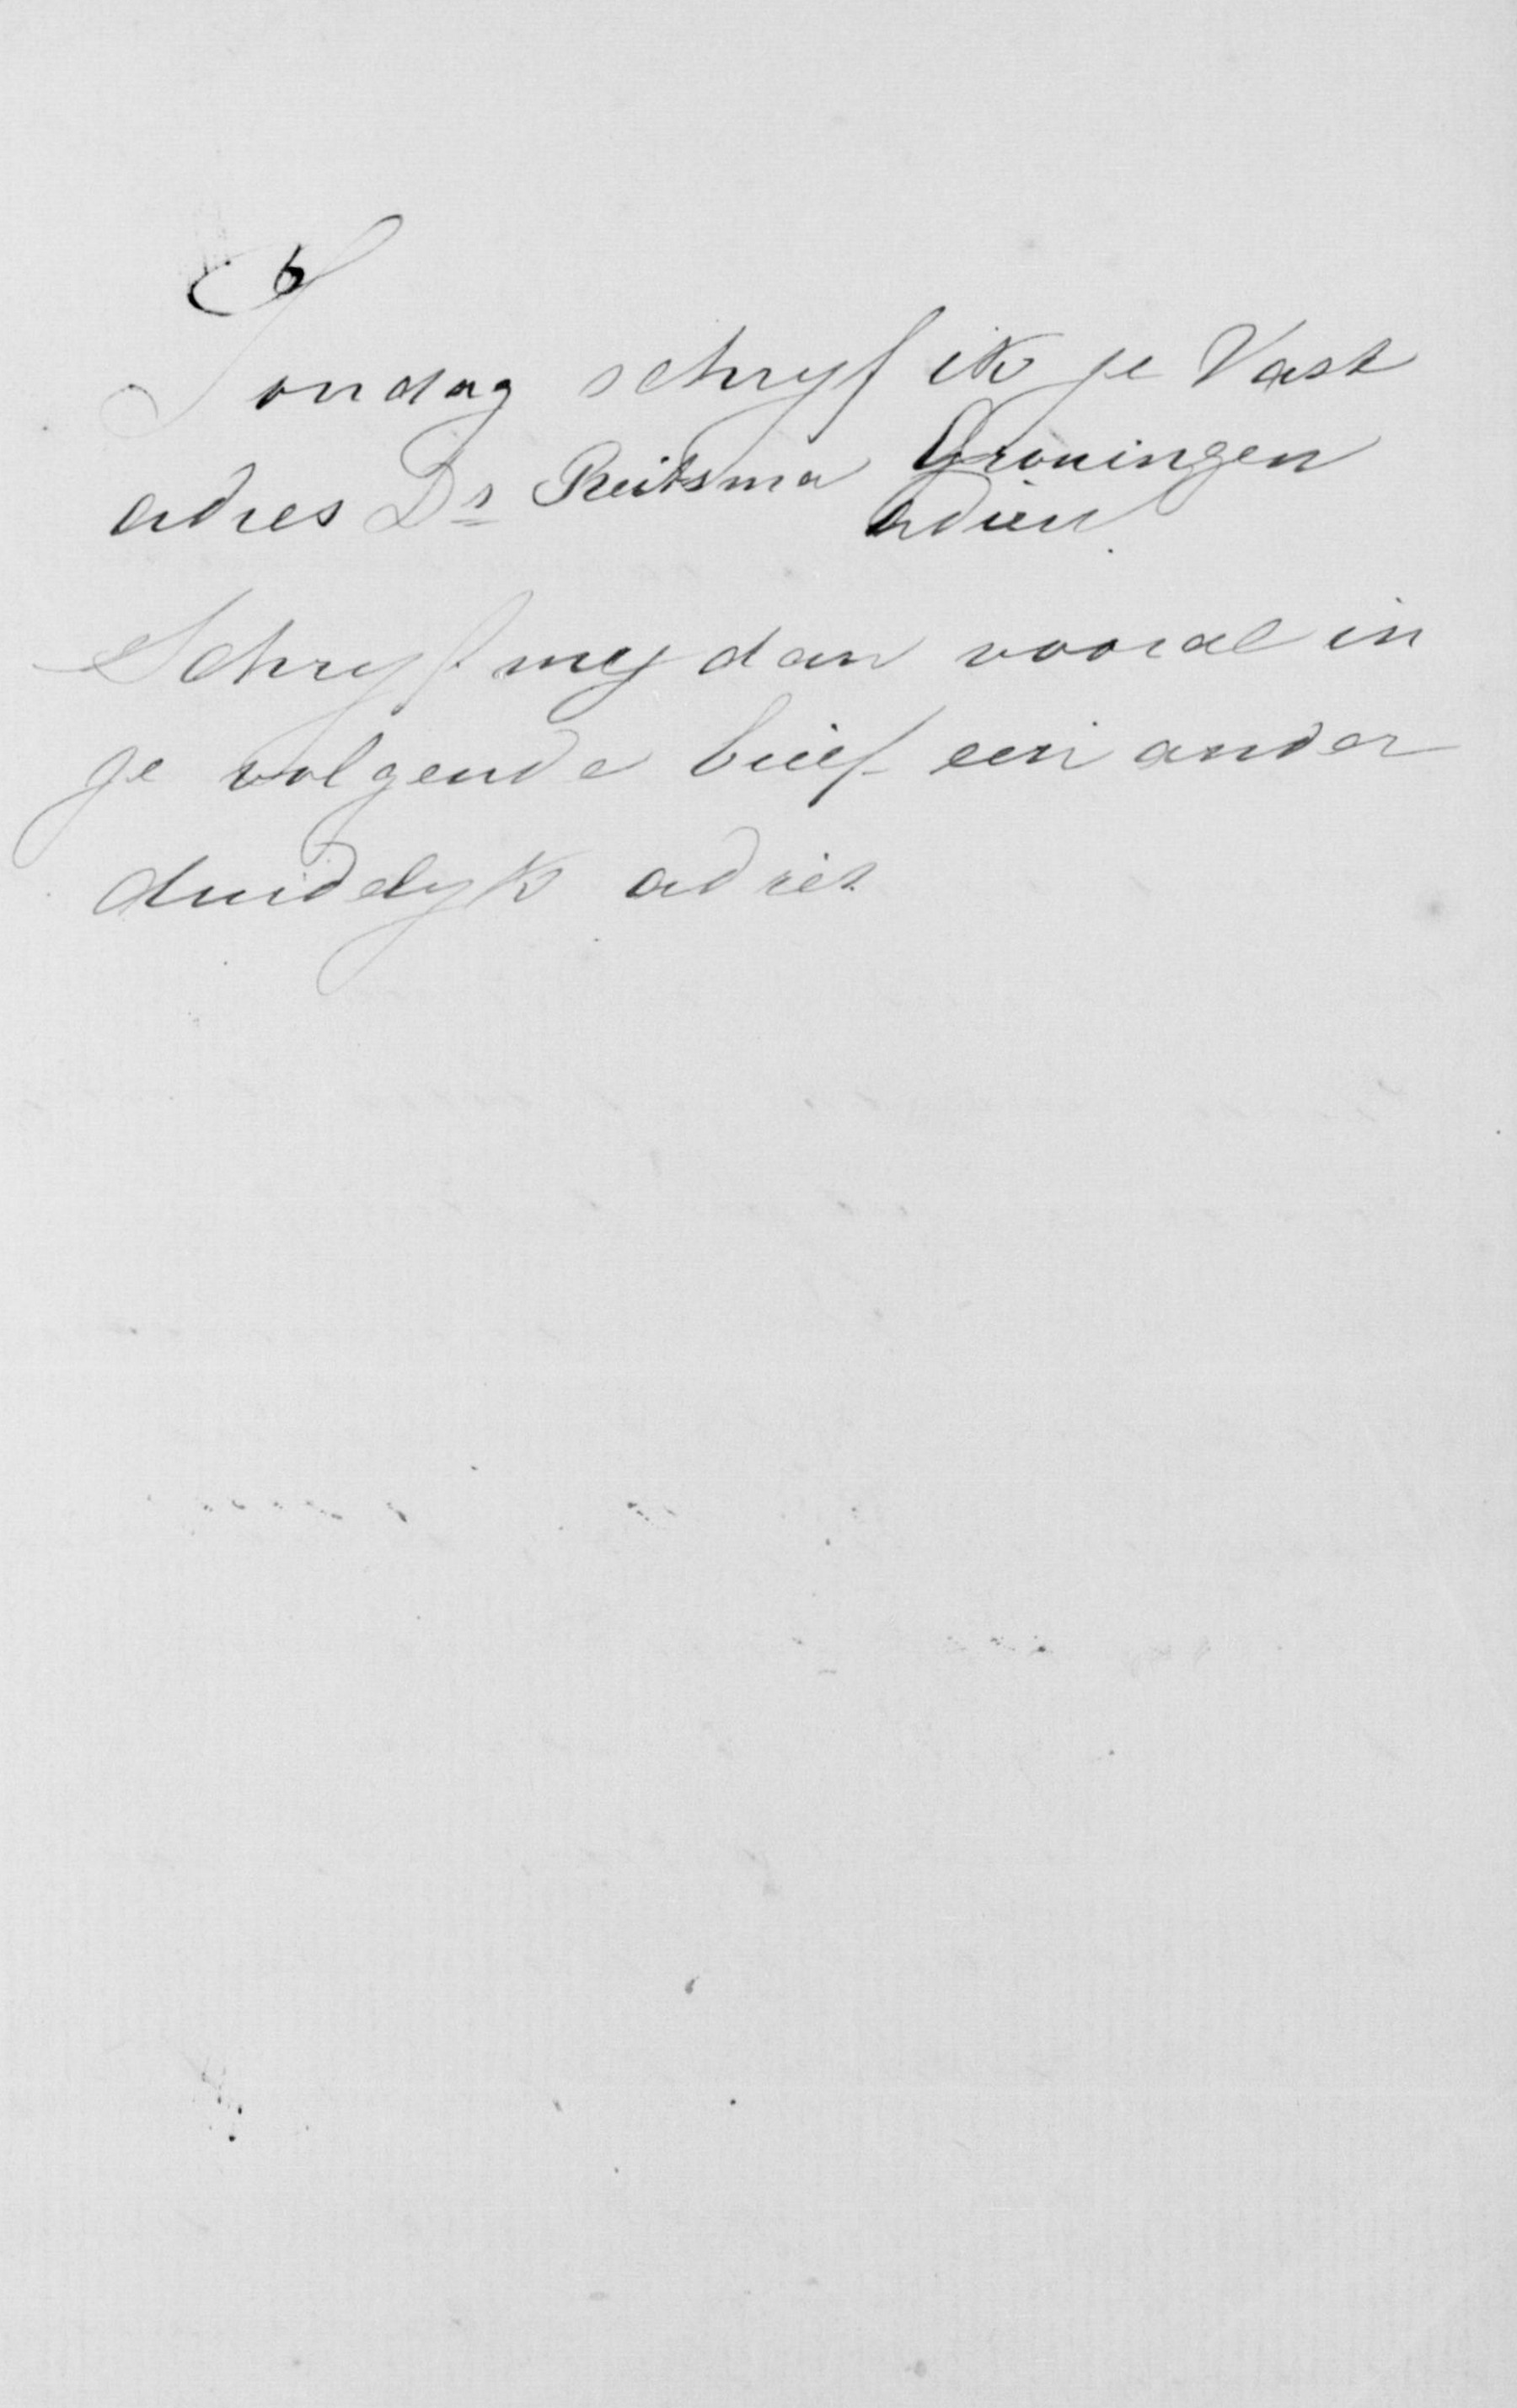 6
Sondag schryf ik je Vast
adres Ds Reitsma Groningen
adieu.
Schryf my dan vooral in
je volgende brief een ander
duidelyk adres